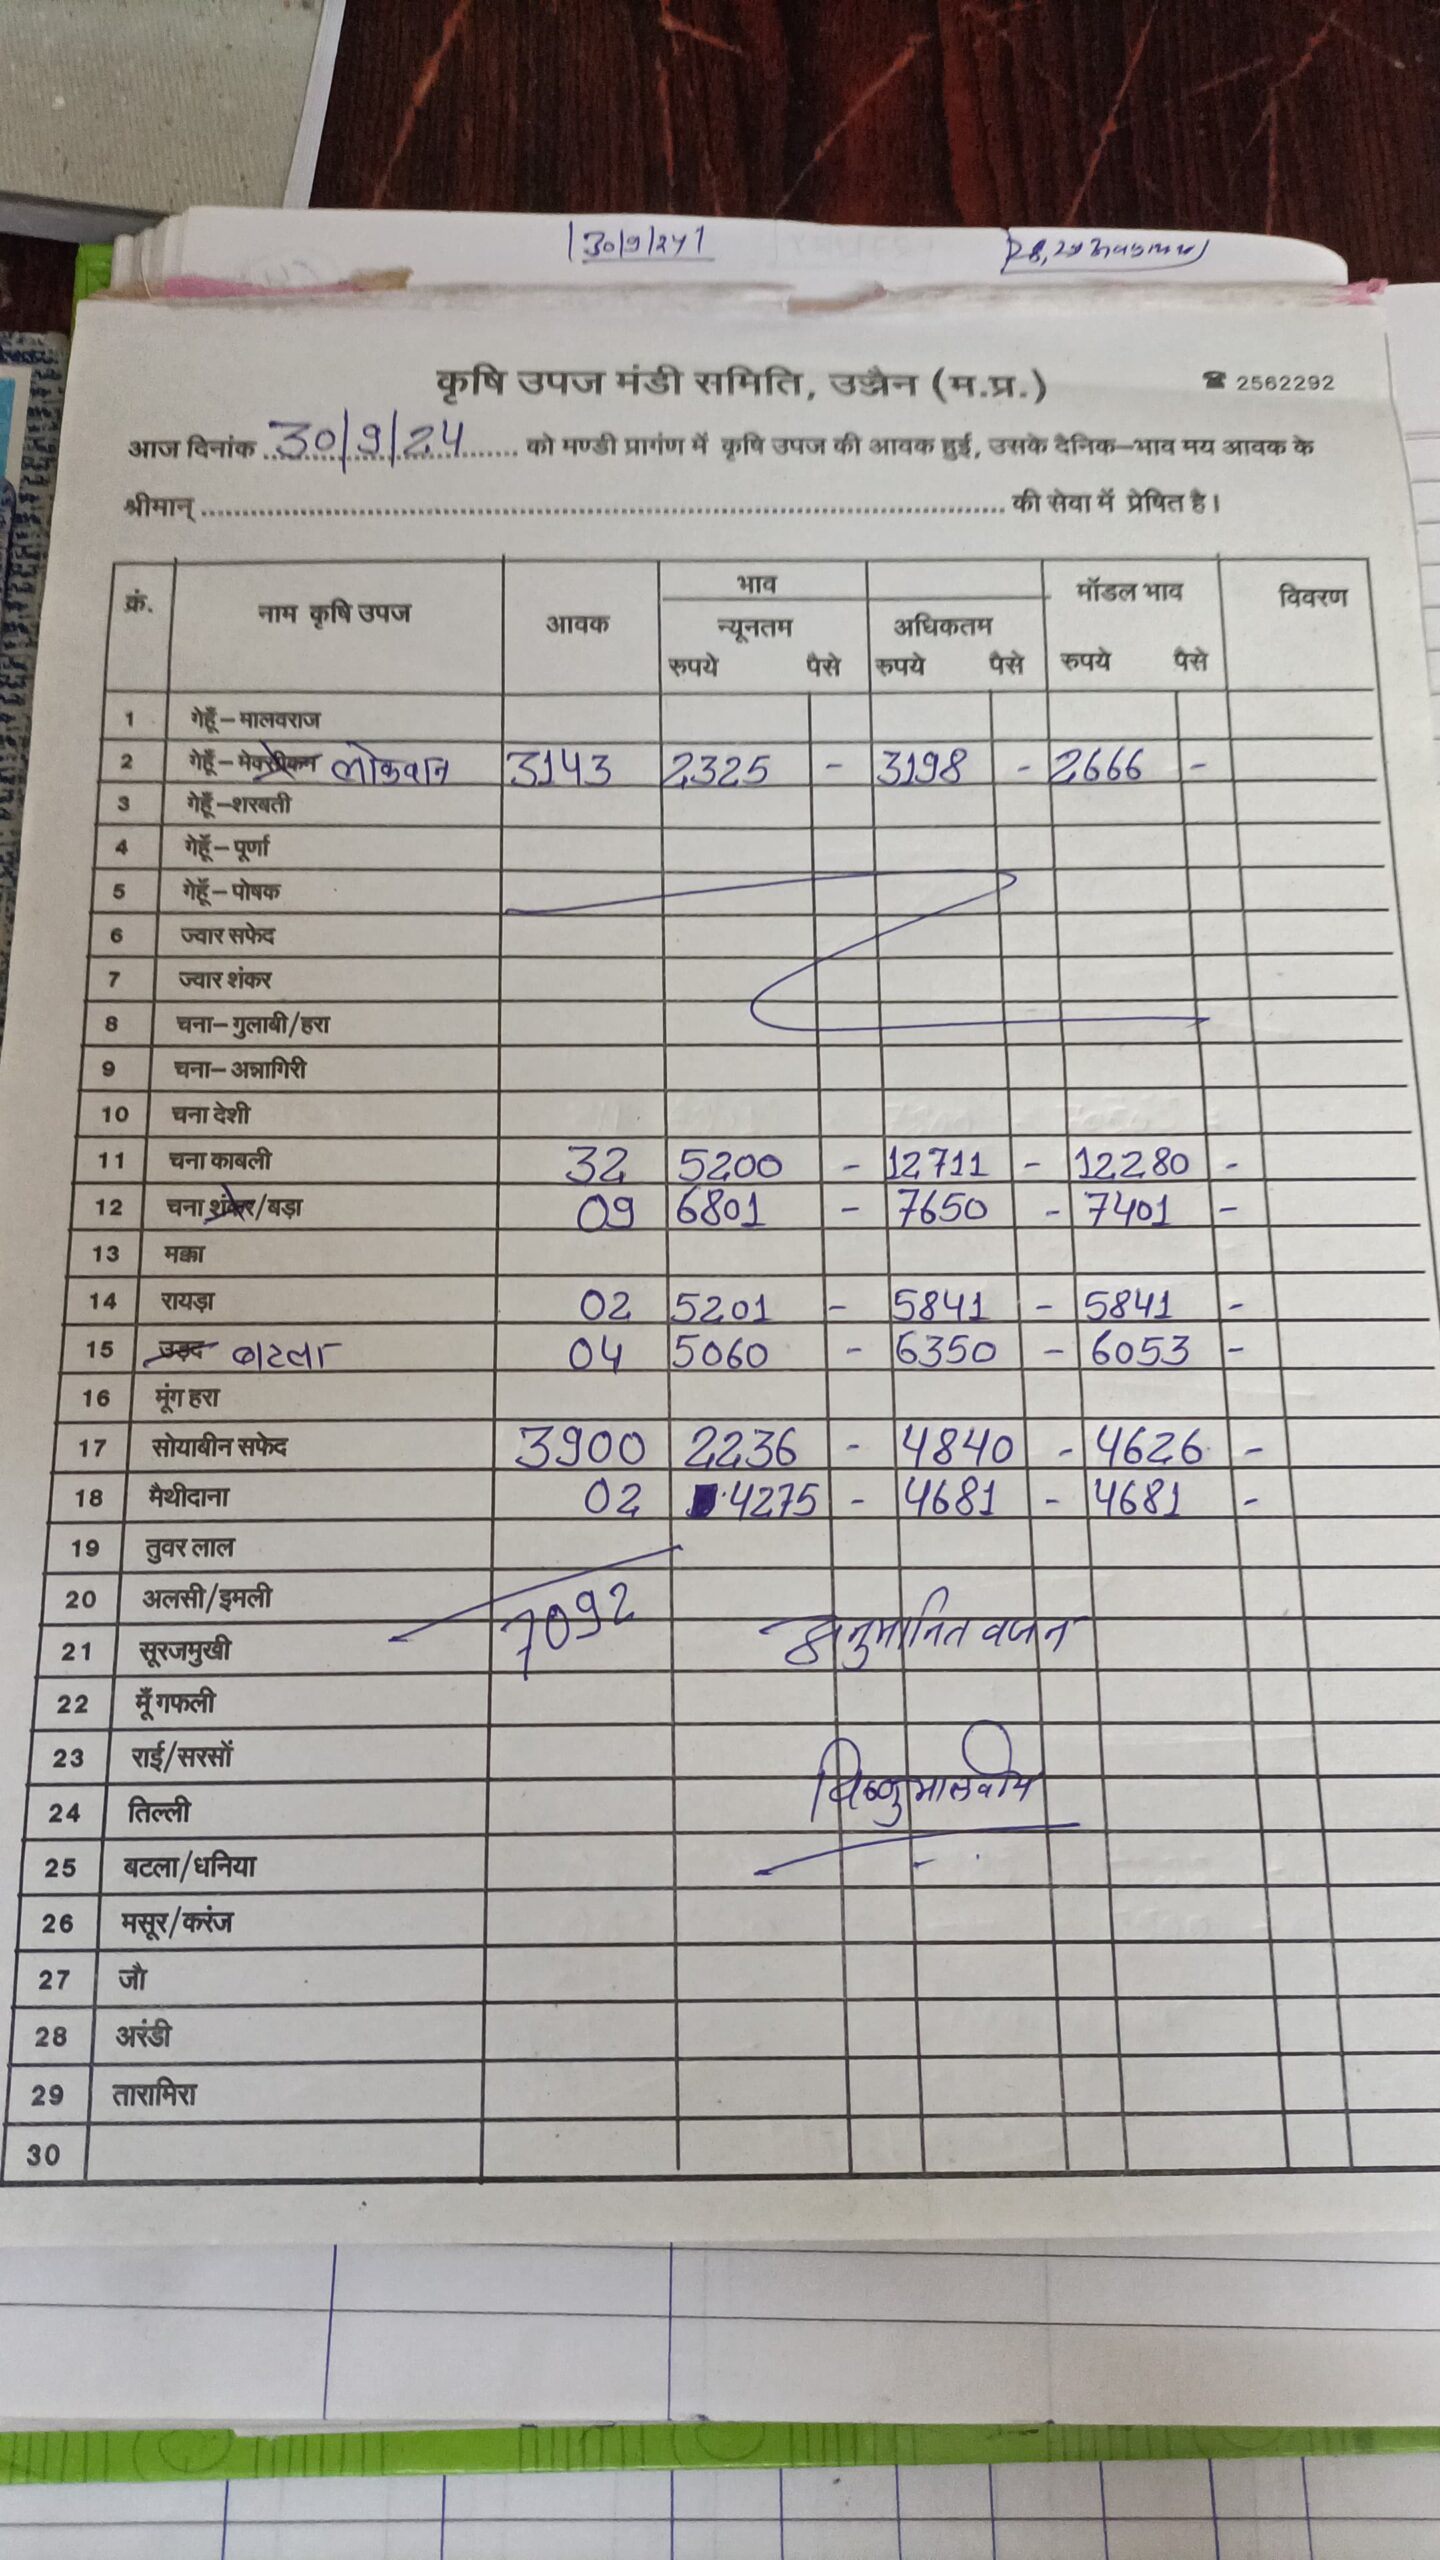 |30/9/24|
28,29 अवकाश
कृषि उपज मंडी समिति, उज्जैन (म.प्र.) ☎ 2562292
आज दिनांक 30/9/24 को मण्डी प्रागंण में कृषि उपज की आवक हुई, उसके दैनिक–भाव मय आवक के
श्रीमान् की सेवा में प्रेषित है।
क्रं. नाम कृषि उपज आवक भाव मॉडल भाव विवरण
न्यूनतम अधिकतम
रुपये पैसे रुपये पैसे रुपये पैसे
1 गेहूँ–मालवराज
2 गेहूँ–मेक्सीकन लोकवान 3143 2325 - 3198 - 2666 -
3 गेहूँ–शरबती
4 गेहूँ–पूर्णा
5 गेहूँ–पोषक
6 ज्वार सफेद
7 ज्वार शंकर
8 चना–गुलाबी/हरा
9 चना–अन्नागिरी
10 चना देशी
11 चना काबली 32 5200 - 12711 - 12280 -
12 चना शंकर/बड़ा 09 6801 - 7650 - 7401 -
13 मक्का
14 रायड़ा 02 5201 - 5841 - 5841 -
15 उड़द बाटला 04 5060 - 6350 - 6053 -
16 मूंग हरा
17 सोयाबीन सफेद 3900 2236 - 4840 - 4626 -
18 मैथीदाना 02 4275 - 4681 - 4681 -
19 तुवर लाल
20 अलसी/इमली
21 सूरजमुखी 7092 अनुमानित वजन
22 मूँगफली
23 राई/सरसों
24 तिल्ली विष्णु मालवीय
25 बटला/धनिया
26 मसूर/करंज
27 जौ
28 अरंडी
29 तारामिरा
30